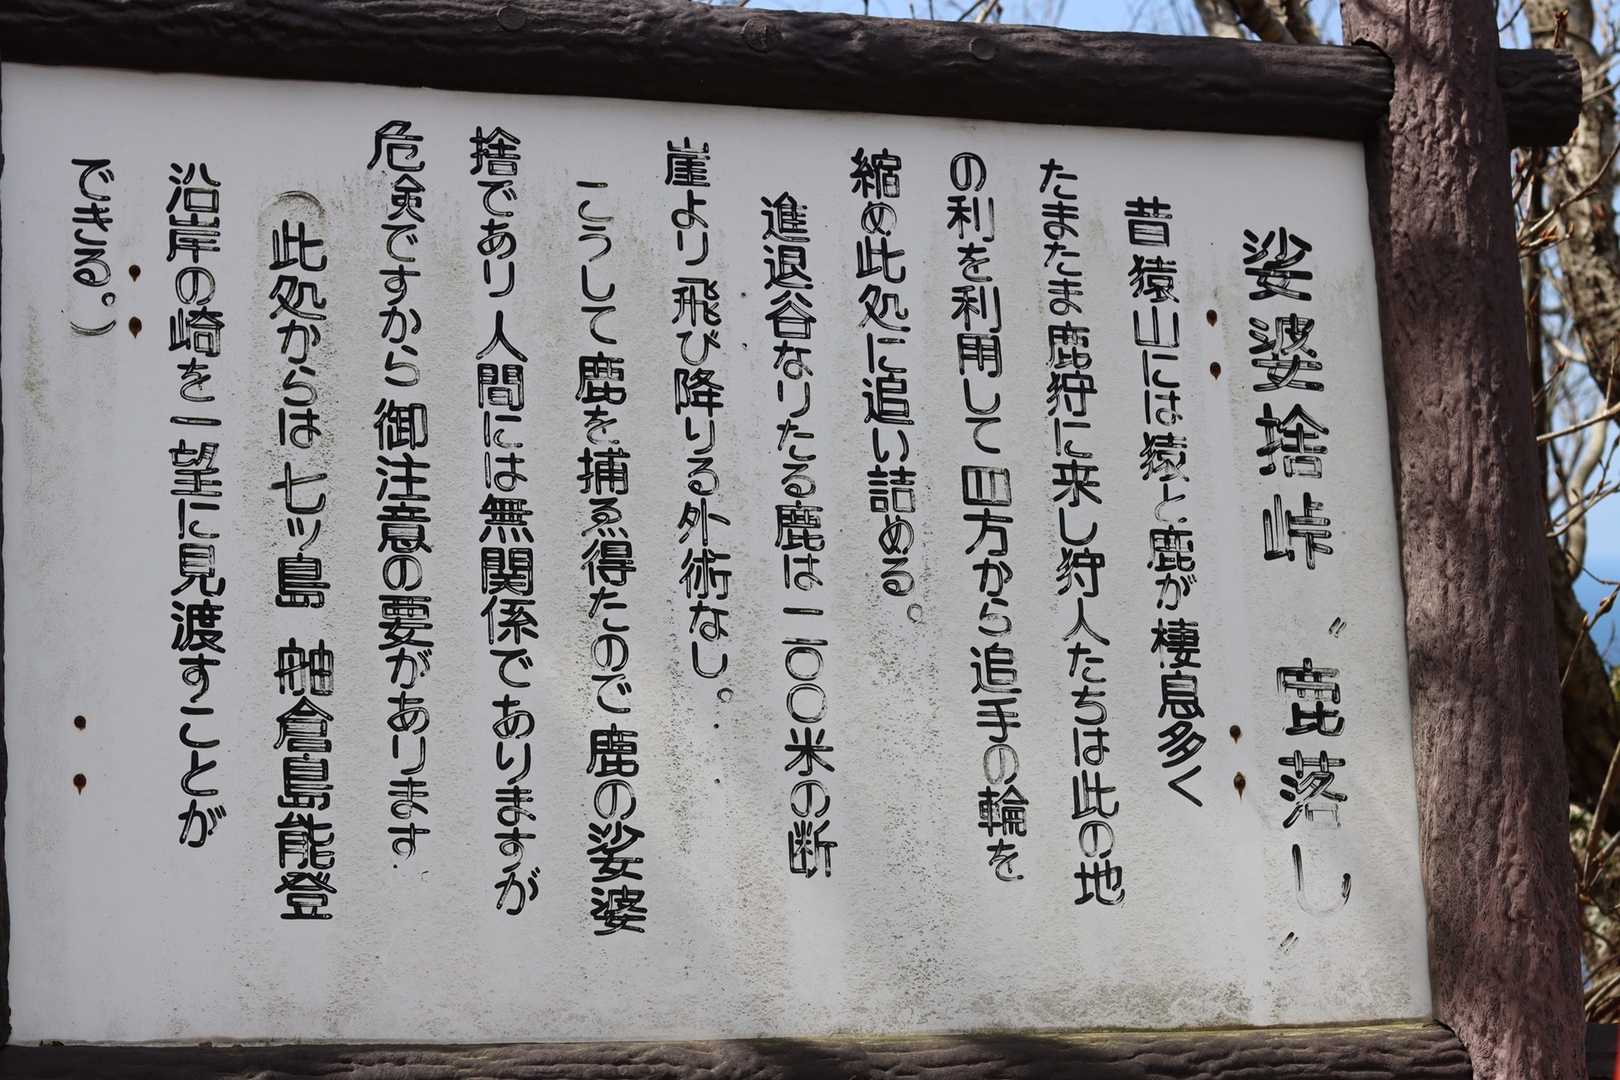 娑婆捨峠 〝鹿落し〟
昔猿山には猿と鹿が棲息多く
たまたま鹿狩に来し狩人たちは此の地
の利を利用して四方から追手の輪を
縮め此処に追い詰める。
進退谷なりたる鹿は一二〇〇米の断
崖より飛び降りる外術なし。
こうして鹿を捕ゑ得たので鹿の娑婆
捨であり人間には無関係でありますが
危険ですから御注意の要があります
(此処からは七ッ島 舳倉島能登
沿岸の崎を一望に見渡すことが
できる。)